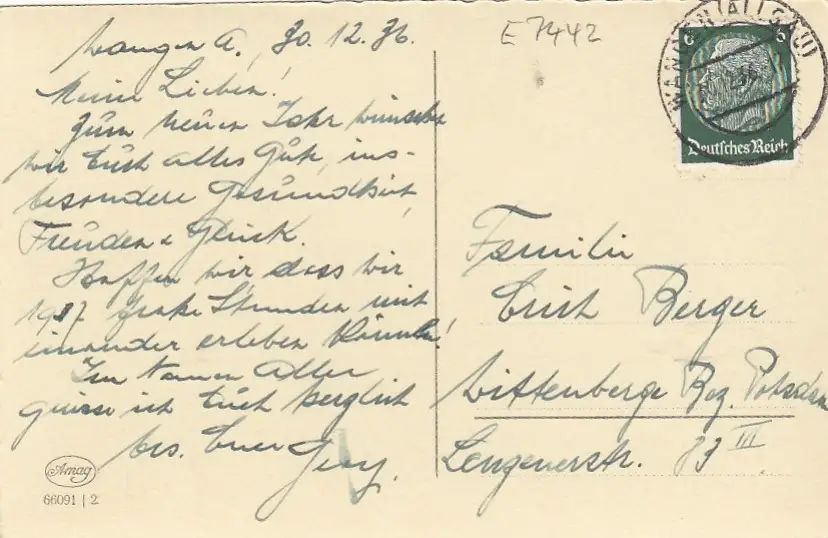 Wangen A., 30.12.36.
Meine Lieben!
Zum neuen Jahr wünschen
wir Euch alles Gute, ins-
besondere Gesundheit,
Freuden & Glück.
Hoffen wir dass wir
1937 frohe Stunden mit
einander erleben können!
Im Namen Aller
grüsse ich Euch herzlich
bes. Euer
Amag
66091 | 2
E 7442
WANGEN (ALLGÄU)
6 6
Deutsches Reich
Familie
Erich Berger
Wittenberge Bez. Potsdam
33 III